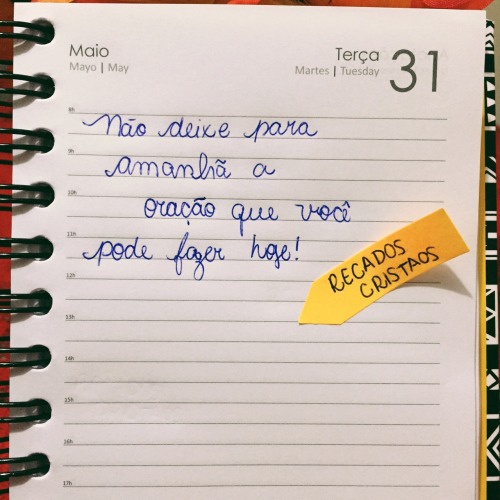 Maio
Mayo | May
Terça
Martes | Tuesday
31
8h
Não deixe para
9h
amanhã a
10h
oração que você
11h
pode fazer hoje!
RECADOS
CRISTAOS
12h
13h
14h
15h
16h
17h